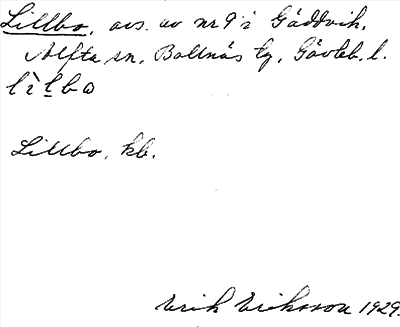 Lillbo, avs. av nr 9 i Gäddvik,
Alfta sn, Bollnäs tg, Gävleb. l.
lìlbω
Lillbo, kb.
Erik Eriksson 1929.